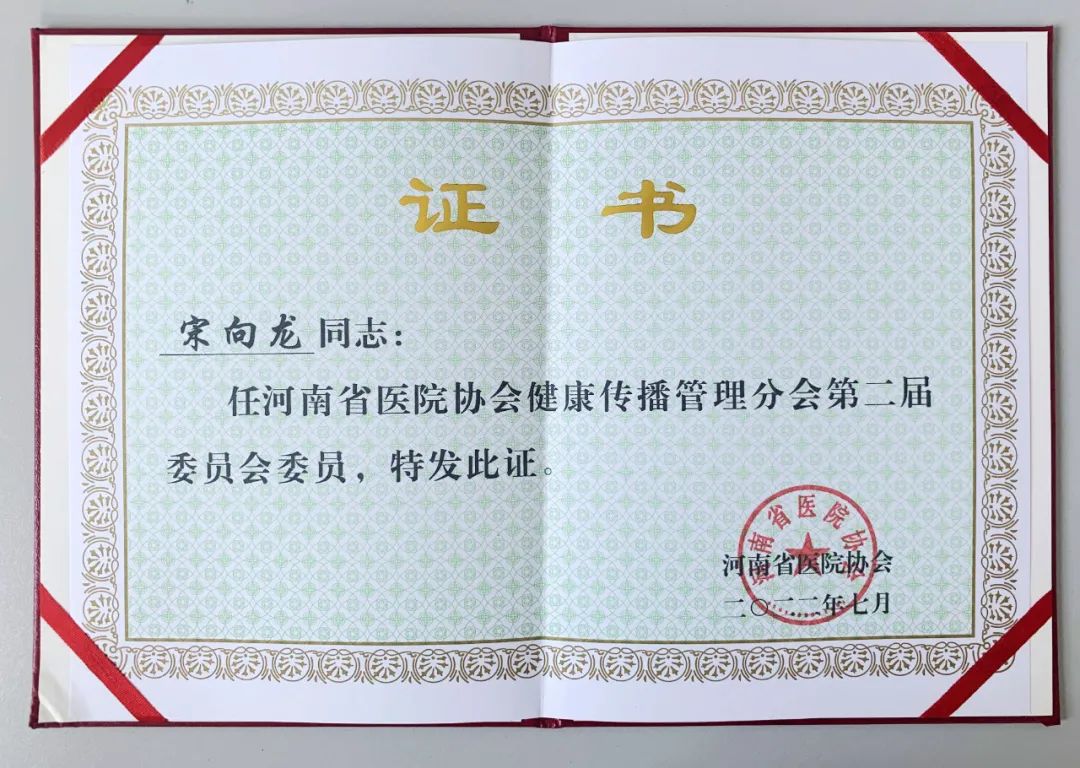 证书
宋向龙同志：
任河南省医院协会健康传播管理分会第二届
委员会委员，特发此证。
河南省医院协会
河南省医院协会
二〇二二年七月